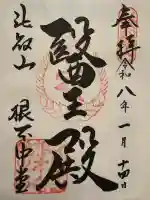 奉拝
令和八年一月十四日
醫王殿
比叡山
根本中堂